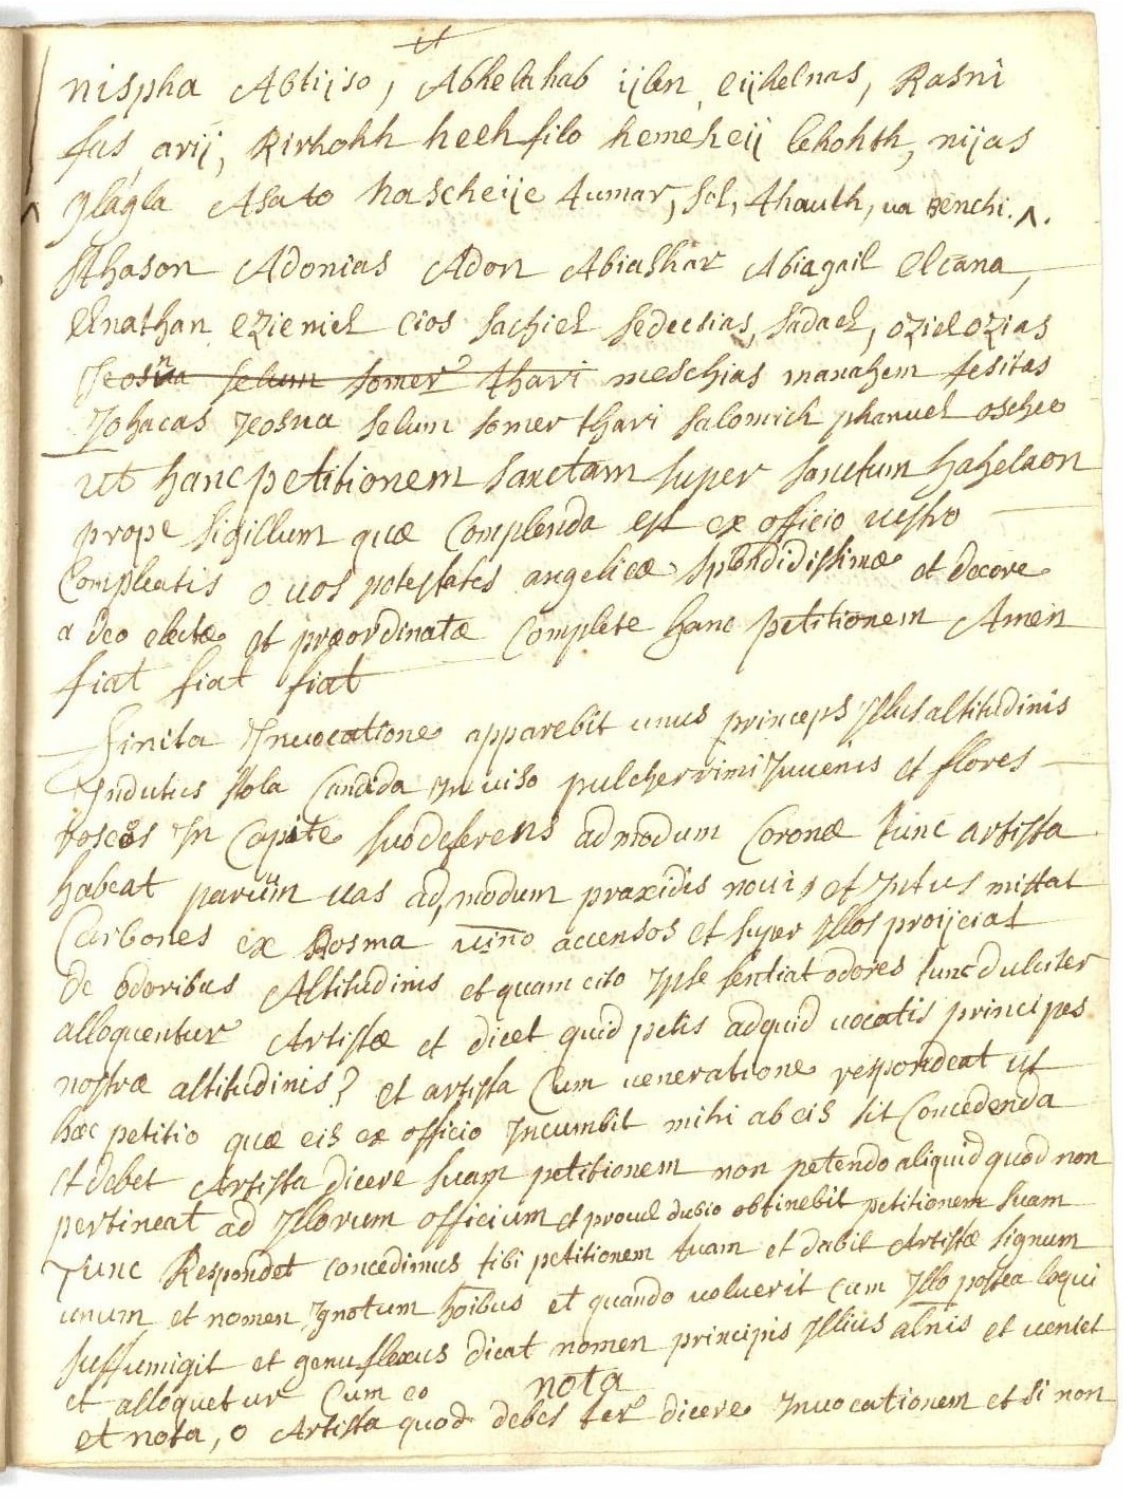 nispha Abtijso, Abhelahab ijlen, eijhelnas, Rasni
fas, arij, Rirhohh heeh filo hemeheij lehohth, nijas
glagla Asato hascheije tumar, sol, thauth, ua Benchi. ʌ.
Sthason Adonias Adon Abiathar Abiagail elcana,
elnathan ezieniel cios sachiel sedecias, sadael, oziel ozias
Jeosua selum somer thari meschias manahem sesitas
Johacas Jeosua selum somer thari salomich phanuel oscheo
ut hanc petitionem sanctam super sanctum hahelaon
prope sigillum quæ complenda est ex officio uestro
Compleatis o uos potestates angelicæ splendidissimæ et decore
a deo electæ et præordinatæ Complete hanc petitionem Amen
fiat fiat fiat
finita Inuocatione apparebit unus princeps Illius altitudinis
Indutus stola Candida In uiso pulcherrimi Iuuenis et flores
roseos In Capite suo deferens ad modum Coronæ tunc artista
habeat paruum uas ad modum praxidis noui, et Intus mittat
Carbones ex Rosma uino accensos et super Illos proijciat
de odoribus Altitudinis et quam cito Ipse sentiat odores tunc dulciter
alloquentur Artistæ et dicet quid petis ad quid uocatis principes
nostræ altitudinis? et artista Cum ueneratione respondeat ut
hæc petitio quæ eis ex officio Incumbit mihi ab eis sit Concedenda
et debet Artista dicere suam petitionem non petendo aliquid quod non
pertineat ad Illorum officium et procul dubio obtinebit petitionem suam
Tunc Respondet concedimus tibi petitionem tuam et dabit Artistæ signum
unum et nomen Ignotum hoibus et quando uoluerit cum Illo postea loqui
suffumigit et genuflexus dicat nomen principis Illius alnis et ueniet
et alloquetur Cum eo nota
et nota, o Artista quod debes ter dicere Inuocationem et si non